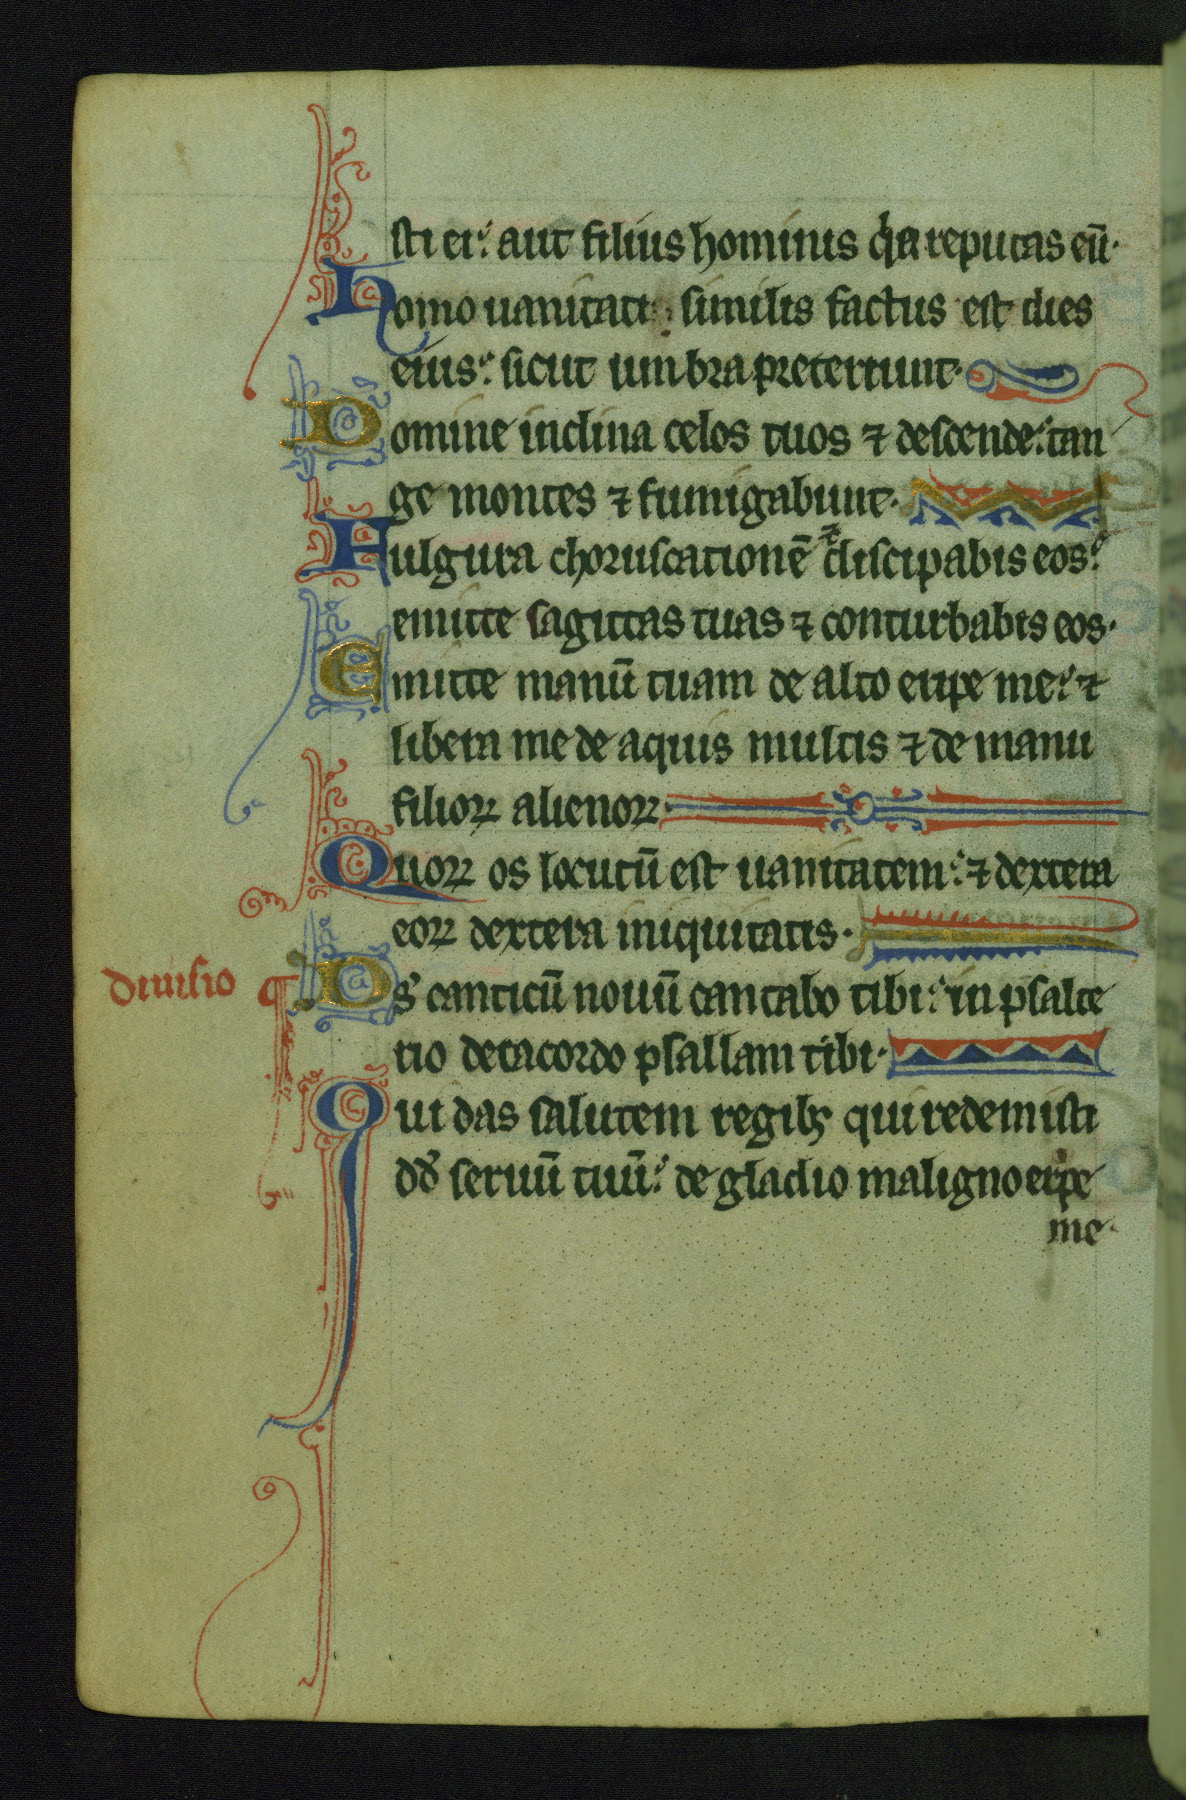 sti ei: aut filius hominis q̇a reputas eū·
Homo uanitati similis factus est dies
eius: sicut umbra pretereunt·
Domine inclina celos tuos ⁊ descende: tan
ge montes ⁊ fumigabunt·
Fulgura choruscationē ⁊ discipabis eos:
emitte sagittas tuas ⁊ conturbabis eos·
Emitte manū tuam de alto eripe me: ⁊
libera me de aquis multis ⁊ de manu
filioꝝ alienoꝝ·
Quoꝝ os locutū est uanitatem: ⁊ dextera
eoꝝ dextera iniquitatis·
diuisio ¶ Ds̄ canticū nouū cantabo tibi: in psalte
rio decacordo psallam tibi·
Qui das salutem regibꝫ qui redemisti
dđ seruū tuū: de gladio maligno eripe
me·